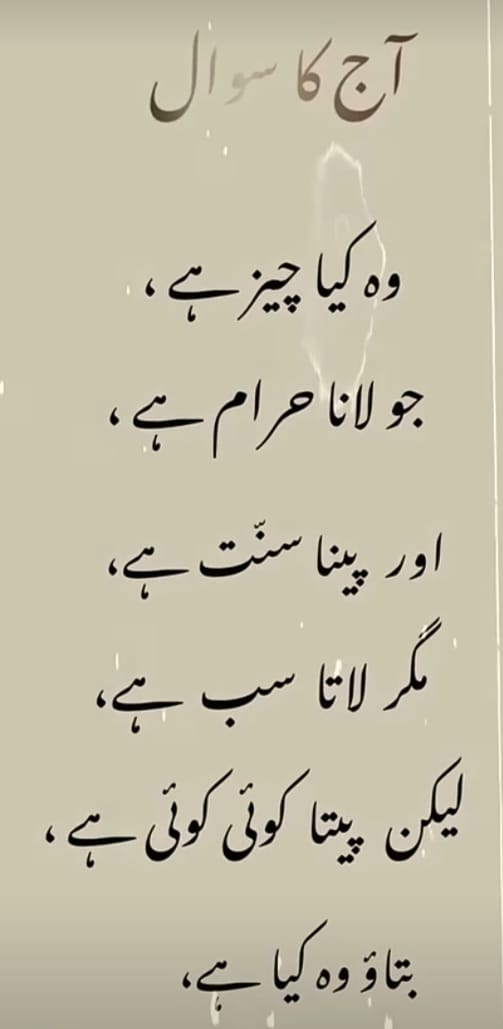 آج کا سوال
وہ کیا چیز ہے ،
جو لانا حرام ہے ،
اور پینا سنّت ہے،
مگر لاتا سب ہے،
لیکن پیتا کوئی کوئی ہے ،
بتاؤ وہ کیا ہے،